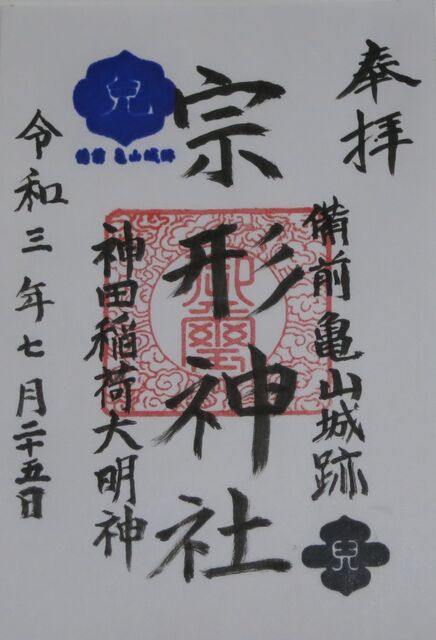 奉拝
備前亀山城跡
兒
宗形神社
神田稲荷大明神
兒
備前 亀山城跡
令和三年七月二十五日